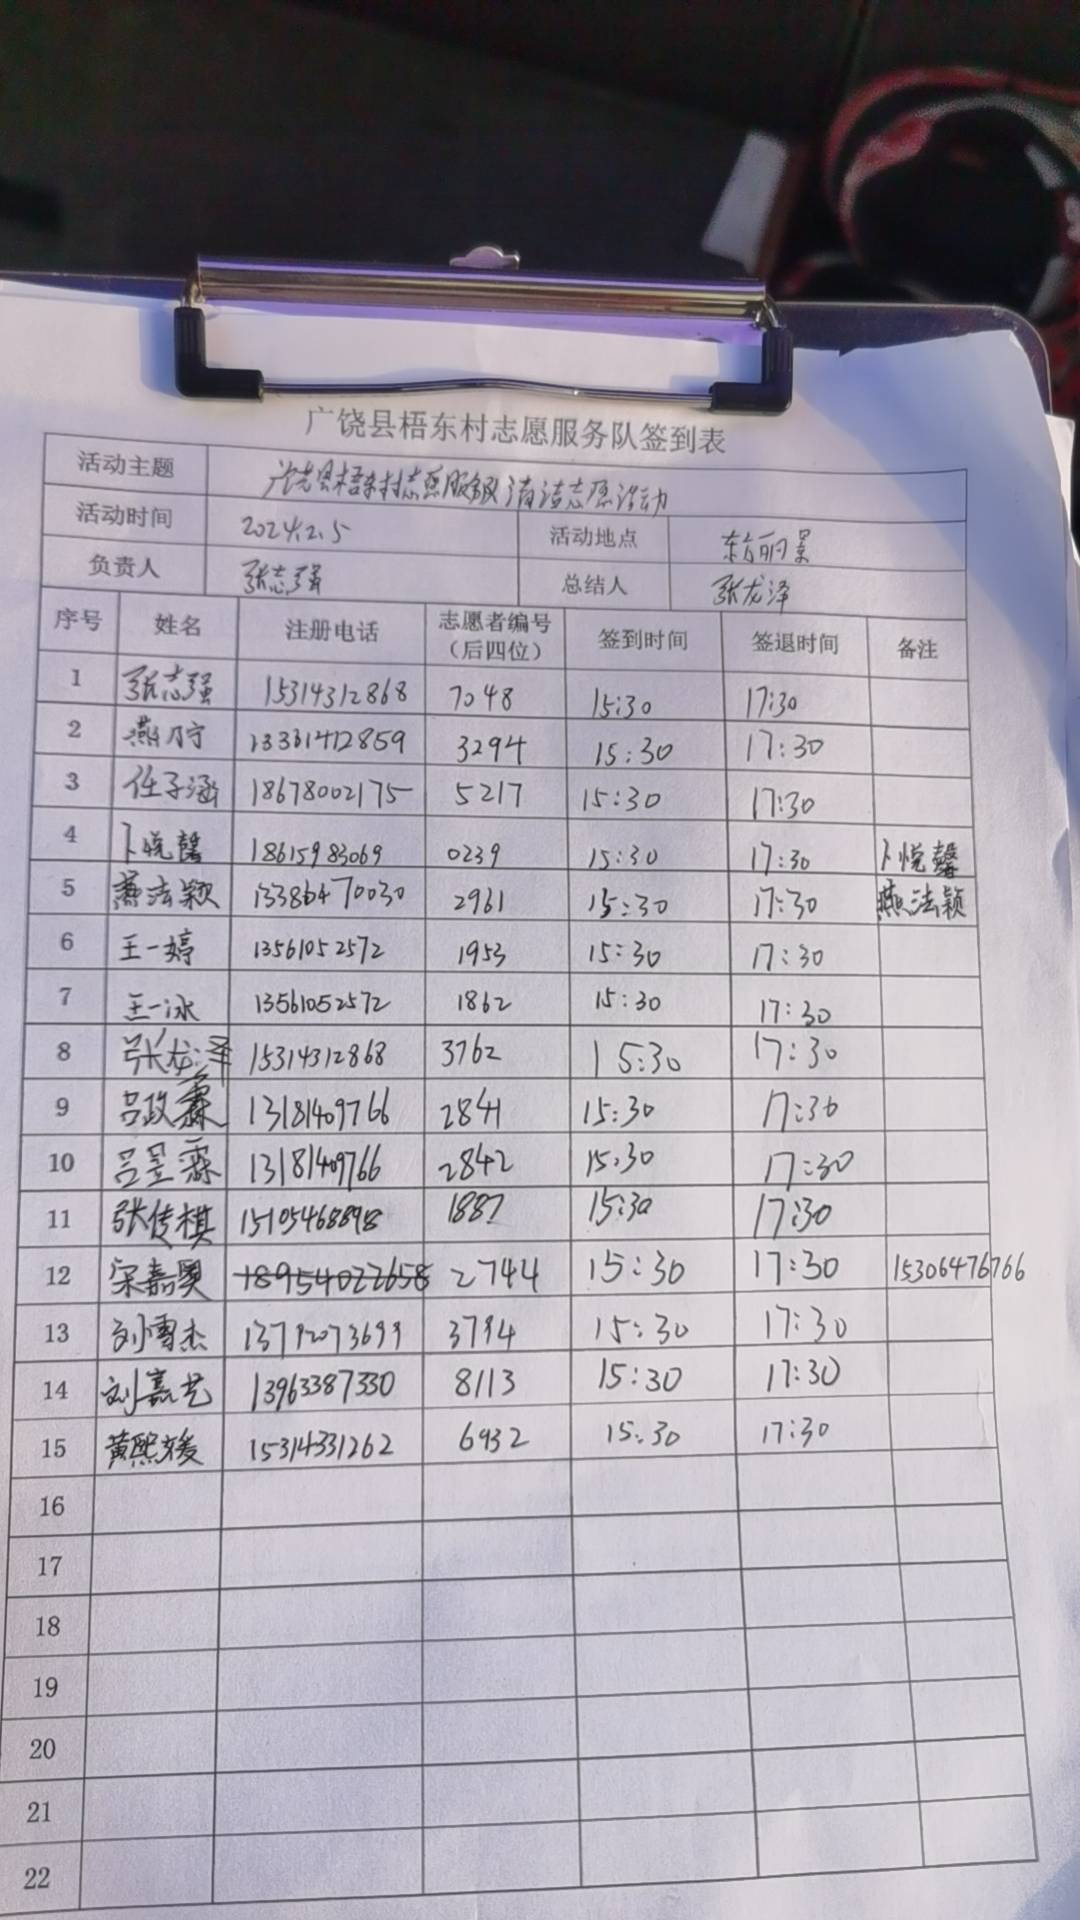 广饶县梧东村志愿服务队签到表
活动主题 广饶县梧东村志愿服务队清洁志愿活动
活动时间 2024.2.5 活动地点 东方丽景
负责人 张志强 总结人 张龙泽
序号 姓名 注册电话 志愿者编号（后四位） 签到时间 签退时间 备注
1 张志强 15314312868 7048 15:30 17:30
2 燕乃宁 13331412859 3294 15:30 17:30
3 任子涵 18678002175 5217 15:30 17:30
4 卜悦馨 18615983069 0239 15:30 17:30 卜悦馨
5 燕法颖 13386470030 2961 15:30 17:30 燕法颖
6 王一婷 13561052572 1953 15:30 17:30
7 王一冰 13561052572 1862 15:30 17:30
8 张龙泽 15314312868 3762 15:30 17:30
9 吕政霖 13181409766 2841 15:30 17:30
10 吕昱霖 13181409766 2842 15:30 17:30
11 张传棋 15105468898 1887 15:30 17:30
12 宋嘉奥 18954022658 2744 15:30 17:30 15306476766
13 刘雪杰 13792073699 3794 15:30 17:30
14 刘嘉艺 13963387330 8113 15:30 17:30
15 黄熙媛 15314331262 6932 15:30 17:30
16
17
18
19
20
21
22